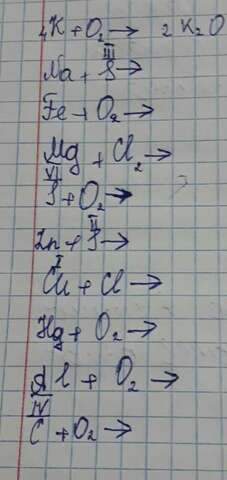 4K + O₂ → 2 K₂O
III
Na + P →
Fe + O₂ →
Mg + Cl₂ →
VI
S + O₂ →
II
Zn + S →
I
Cu + Cl →
Hg + O₂ →
Al + O₂ →
IV
C + O₂ →